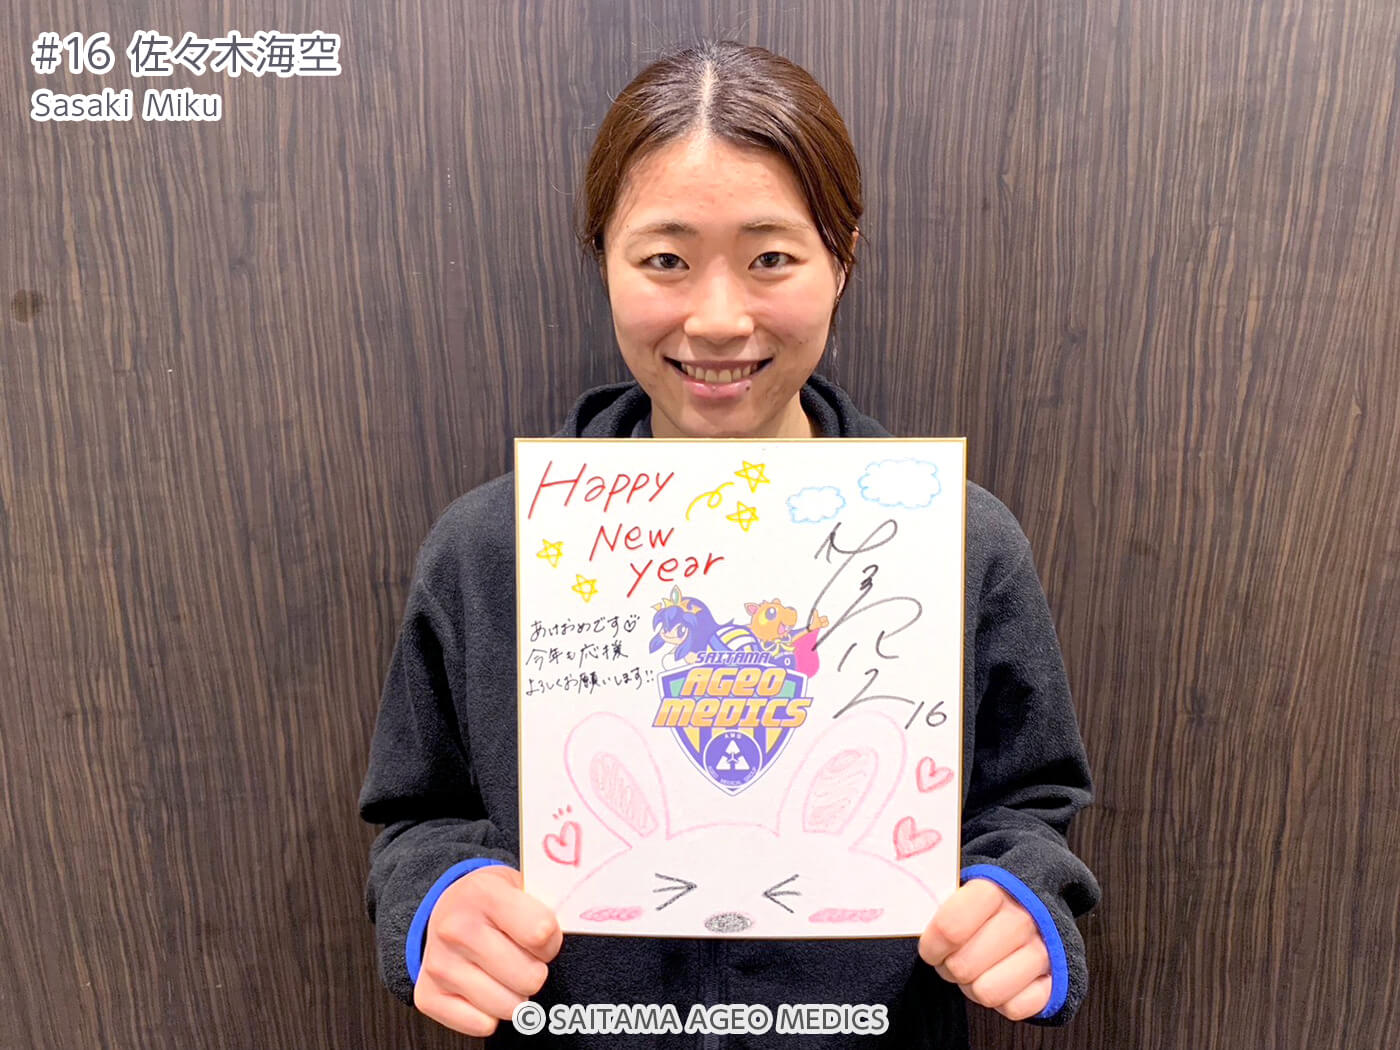 #16 佐々木海空
Sasaki Miku
Happy
New
year
あけおめです
今年も応援
よろしくお願いします!!
SAITAMA
AGEO
MEDICS
AMG
AGEO MEDICAL GROUP
16
© SAITAMA AGEO MEDICS